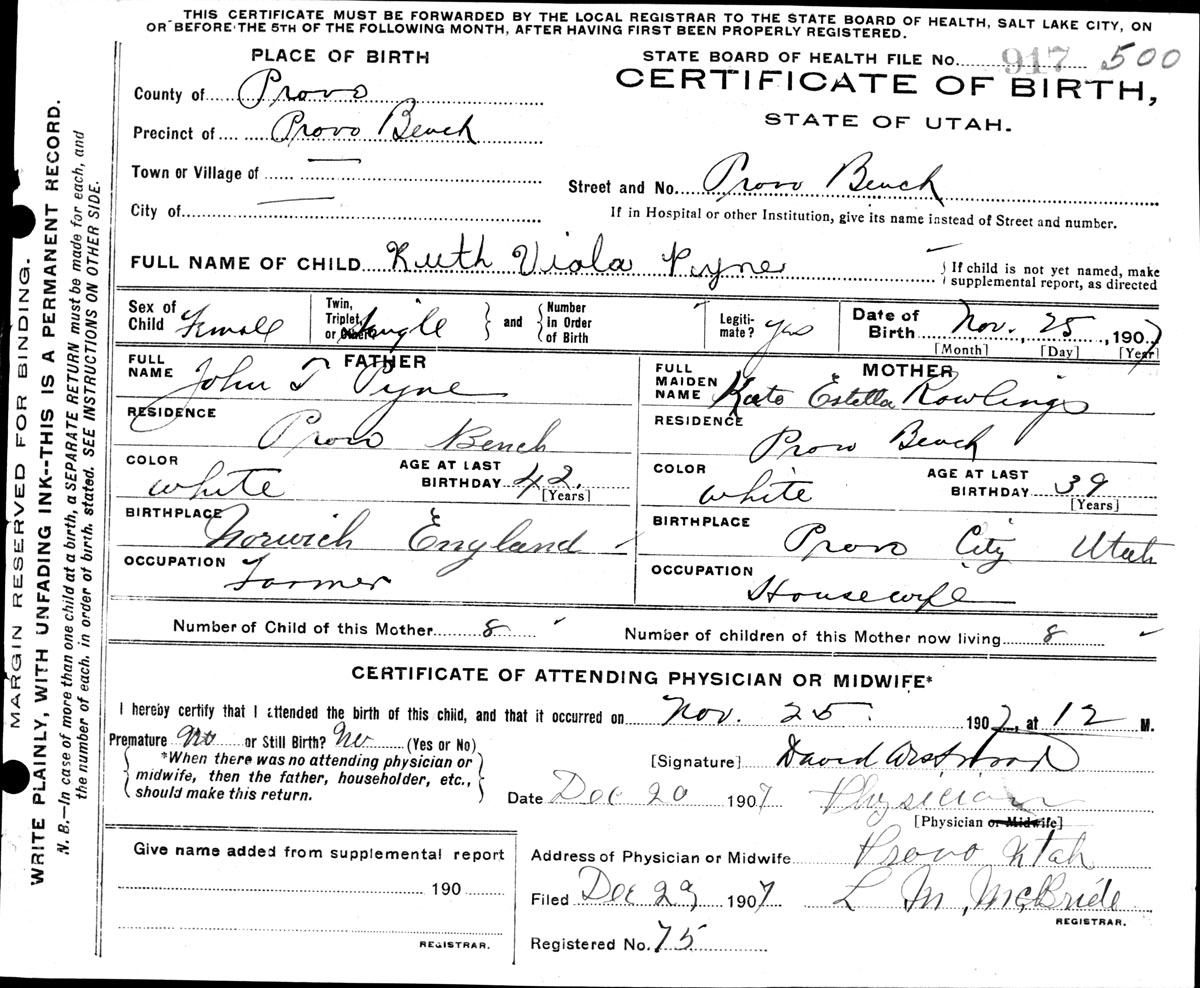 THIS CERTIFICATE MUST BE FORWARDED BY THE LOCAL REGISTRAR TO THE STATE BOARD OF HEALTH, SALT LAKE CITY, ON
OR BEFORE THE 5TH OF THE FOLLOWING MONTH, AFTER HAVING FIRST BEEN PROPERLY REGISTERED.
PLACE OF BIRTH
STATE BOARD OF HEALTH FILE No. 917 500
CERTIFICATE OF BIRTH,
STATE OF UTAH.
County of Provo
Precinct of Provo Bench
Town or Village of —
City of —
Street and No. Provo Bench
If in Hospital or other Institution, give its name instead of Street and number.
FULL NAME OF CHILD Ruth Viola Pyne
If child is not yet named, make
supplemental report, as directed
Sex of Child Female
Twin, Triplet, or Other? Single
and
Number in Order of Birth
Legiti-mate? yes
Date of Birth Nov. 25, 1907
[Month] [Day] [Year]
FATHER
FULL NAME John T Pyne
RESIDENCE Provo Bench
COLOR white
AGE AT LAST BIRTHDAY 42.
[Years]
BIRTHPLACE Norwich England
OCCUPATION Farmer
MOTHER
FULL MAIDEN NAME Kate Estella Rowlings
RESIDENCE Provo Bench
COLOR white
AGE AT LAST BIRTHDAY 39
[Years]
BIRTHPLACE Provo City Utah
OCCUPATION Housewife
Number of Child of this Mother 8
Number of children of this Mother now living 8
CERTIFICATE OF ATTENDING PHYSICIAN OR MIDWIFE*
I hereby certify that I attended the birth of this child, and that it occurred on Nov. 25. 1907, at 12 M.
Premature No or Still Birth? No (Yes or No)
*When there was no attending physician or
midwife, then the father, householder, etc.,
should make this return.
[Signature] David Westwood
Date Dec 20 1907 Physician
[Physician or Midwife]
Address of Physician or Midwife Provo Utah
Filed Dec 29 1907 L M, McBride
REGISTRAR.
Registered No. 75
Give name added from supplemental report
190
REGISTRAR.
MARGIN RESERVED FOR BINDING.
WRITE PLAINLY, WITH UNFADING INK--THIS IS A PERMANENT RECORD.
N. B.—In case of more than one child at a birth, a SEPARATE RETURN must be made for each, and
the number of each, in order of birth, stated. SEE INSTRUCTIONS ON OTHER SIDE.